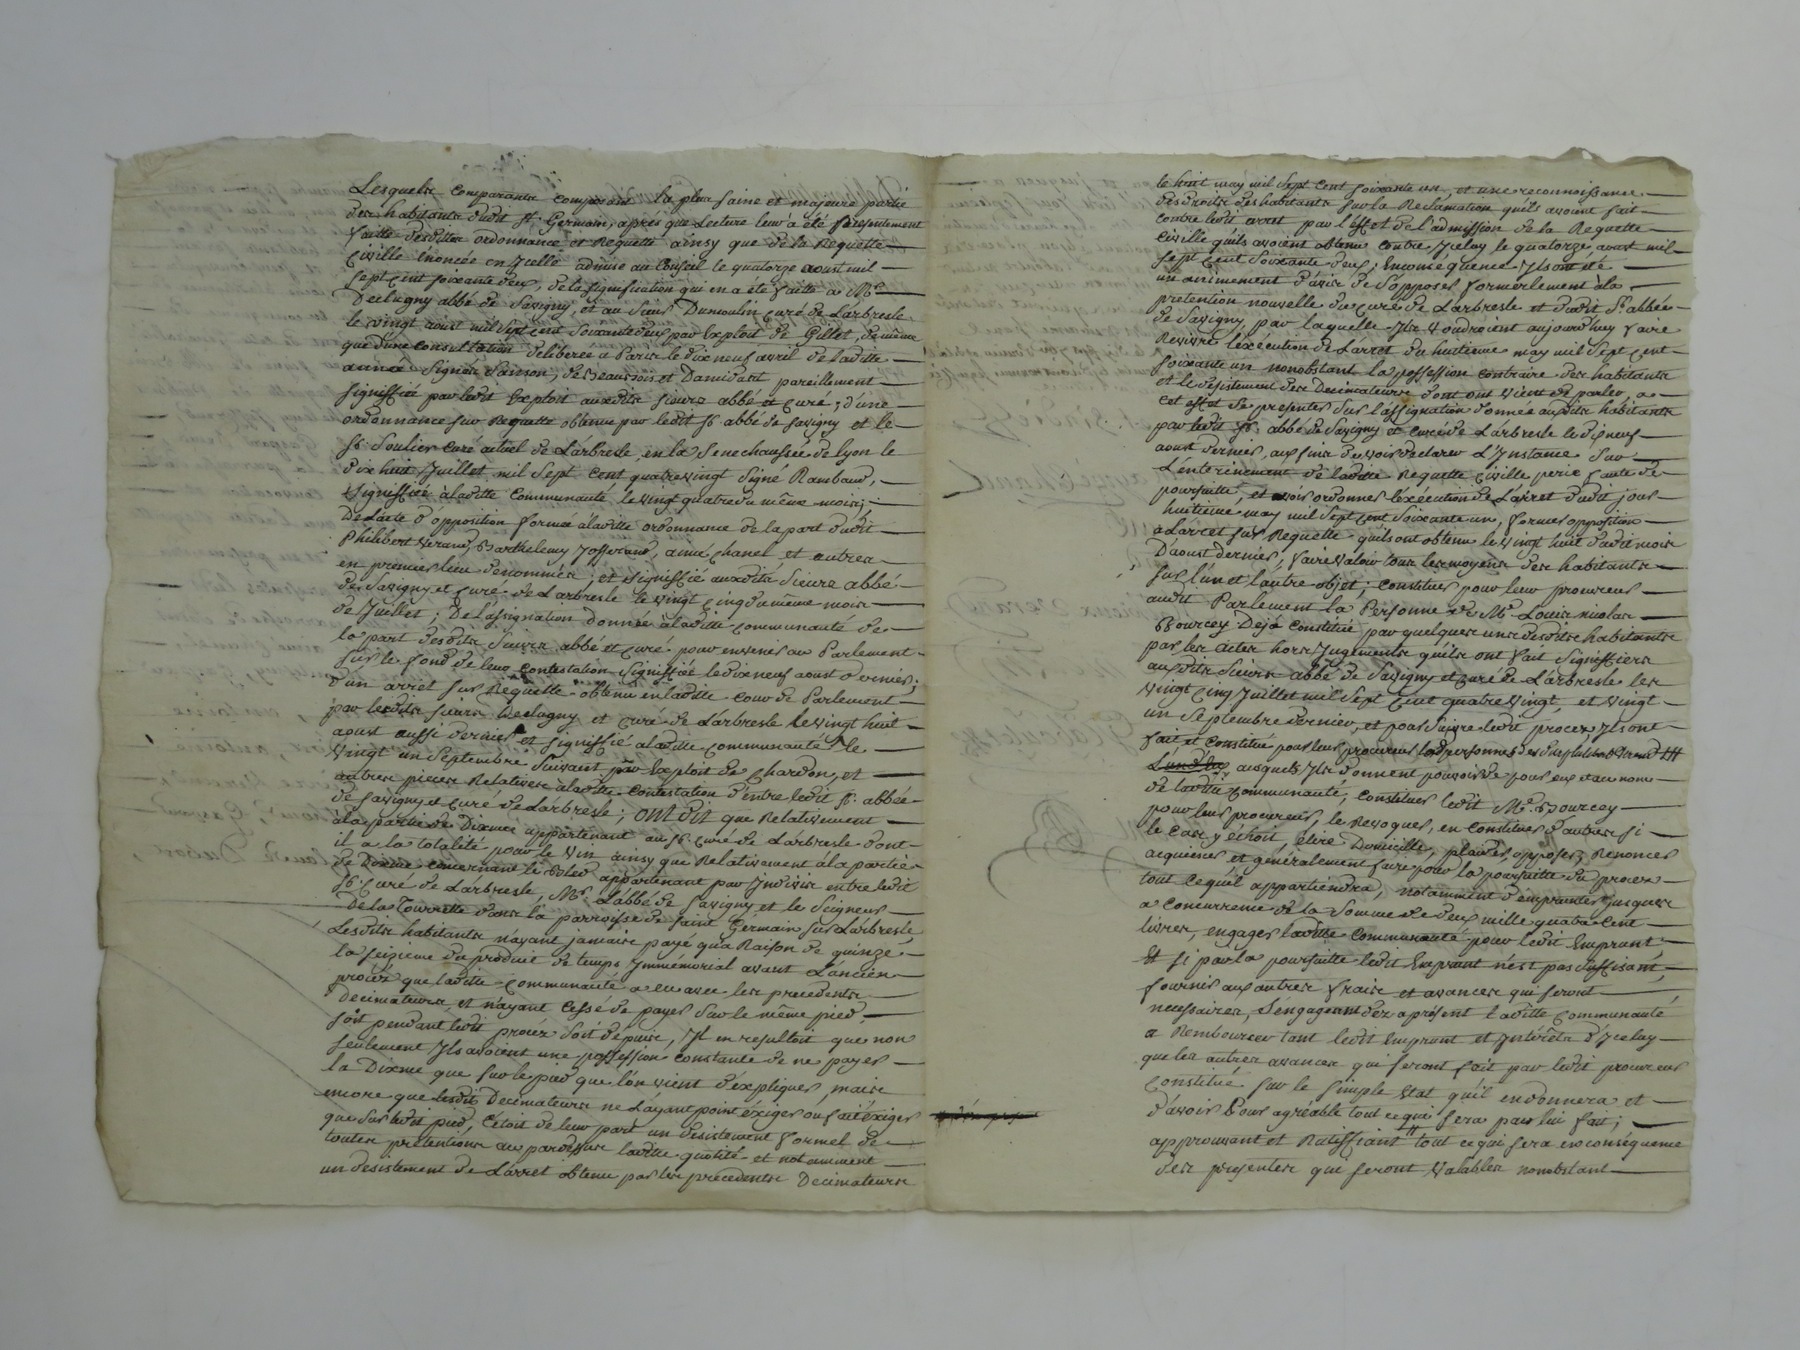 Lesquels comparants composant la plus saine et majeure partie
des habitants dudit St. Germain, après que Lecture leur a été présentement
faitte desdittes ordonnance et Requette ainsy que de la Requette
Civille énoncée en Icelle admise au Conseil le quatorze aoust mil
sept Cent soixante deux, de la signification qui en a été faitte a Mr.
Declugny abbé de Savigny, et au Sieur Dumoulin curé de Larbresle
le vingt aoust mil sept cent soixante deux par Exploit de Gillet, de même
que d'une consultation deliberée a Paris le dix neuf avril de laditte
année Signée Sanson, de Beaubois et Damidart pareillement
signiffiée par ledit Exploit auxdits sieurs abbé et curé; d'une
ordonnance sur Requette obtenue par ledit Sr. abbé de Savigny et le
Sr. Soulier Curé actuel de Larbresle, en la Senechaussée de lyon le
dix huit Juillet mil sept cent quatrevingt Signé Rambaud,
signiffiée a laditte Communauté le vingt quatre du même mois;
De L'acte d'opposition formée a laditte ordonnance de la part dudit
Philibert Verand, Barthelemy Jofferand, aimé Chanel et autres
en premier lieu denommés; et signiffié auxdits Sieurs abbé
de Savigny et curé de Larbresle le vingt cinq du même mois
de Juillet; De l'assignation donnée a laditte communauté de
la part desdits Sieurs abbé et curé pour en venir au Parlement
sur le fond de leur contestation signiffiée le dix neuf aoust dernier;
d'un arret sur Requette obtenu en laditte cour de Parlement
par lesdits sieurs Declugny et curé de Larbresle le vingt huit
aoust aussi dernier et signiffié a laditte communauté le
vingt un Septembre suivant par Exploit de Chardon, et
autres pieces Relatives a laditte contestation d'entre ledit Sr. abbée
de Savigny et curé de Larbresle; ONT DIT que Relativement
a la partie de Dixme appartenant au Sr. curé de Larbresle dont
il a la totalité pour le vin ainsy que Relativement a la partie
de Dixme concernant le Bled appartenant par Indivis entre ledit
Sr. Curé de Larbresle, Mr. L'abbé de Savigny et le Seigneur
De la Tourrette dans la parroisse de saint Germain sur Larbresle
Lesdits habitants n'ayant jamais payé qu'a Raison de quinze
la seizieme du produit de temps Immémorial avant L'ancien
procès que laditte communauté a eu avec les precedents
Decimateurs et n'ayant Cessé de payer sur le même pied,
soit pendant ledit procès soit depuis, Il en resultoit que non
seulement Ils avoient une possession constante de ne payer
la Dixme que sur le pied que l'on vient d'expliquer, mais
encore que lesdits Decimateurs ne L'ayant point éxiger ou fait éxiger
que sur ledit pied, C'étoit de leur part un desistement formel de
toutes pretentions au pardessus laditte quotité et notamment
un desistement de L'arret obtenu par les precedents Decimateurs
le huit may mil sept cent soixante un, et une reconnoissance
des droits des habitants sur la Reclamation qu'ils avoient fait
contre ledit arret par l'effet de l'admission de la Requette
Civille qu'ils avoient obtenu contre Iceluy le quatorze aoust mil
sept Cent Soixante deux; Enconséquence Ils ont été
unanimement d'avis de s'opposer formellement a la
pretention nouvelle du curé de Larbresle et dudit Sr. abbée
de Savigny par laquelle Ils voudroient aujourdhuy faire
Revivre l'éxécution de L'arret du huitieme may mil sept cent
soixante un nonobstant la possession contraire des habitants
et le desistement des Decimateurs dont ont vient de parler, a
cet effet se presenter sur l'assignation donnée auxdits habitants
par ledit Sr. abbé de Savigny et curé de Larbresle le dix neuf
aoust dernier, aux fins de voir declarer L'Instance sur
L'enterinement de laditte Requette Civille perie faute de
poursuitte, et voir ordonner lexécution de L'arret dudit jour
huitieme may mil sept cent soixante un, former opposition
a Larret sur Requette qu'ils ont obtenu le vingt huit dudit mois
D'aoust dernier, faire valoir tous les moyens des habitants
sur l'un et l'autre objet; Constituer pour leur procureur
audit Parlement la Personne de Me. Louis nicolas
Bourcey Déja constitué par quelques uns desdits habitants
par les actes hors Jugements qu'ils ont fait Signiffiers
auxdits Sieurs abbé de Savigny et curé de Larbresle les
vingt cinq Juillet mil sept cent quatre vingt, et vingt
un Septembre dernier, et pour suivre ledit procez Ils ont
fait et Constitué pour leurs procureurs
ausquels Ils donnent pouvoir de pour eux et au nom
de laditte communauté, Constituer ledit Me. Bourcey
pour leur procureur, le Revoquer, en Constituer d'autres si
le Cas y échoit, élire Domicille, plaider, opposer, Renoncer
acquiescer et généralement faire pour la poursuitte du procez
tout ce qu'il appartiendra, notamment d'emprunter jusques
a concurrence de la somme de deux mille quatre cent
livres, engager laditte communauté pour ledit Emprunt
Et si par la poursuitte ledit Emprunt n'est pas suffisant,
fournir aux autres frais et avances qui seront
necessaires, S'engageant dez a présent laditte communauté
a Rembourcer tant ledit Emprunt et Intérêts d'Iceluy
que les autres avances qui seront fait par ledit procureur
constitué sur le simple Etat qu'il en donnera et
d'avoir Pour agréable tout ce qui sera par lui fait;
approuvant et Ratiffiant tout ce qui sera enconséquence
des presentes qui seront valables nonobstant